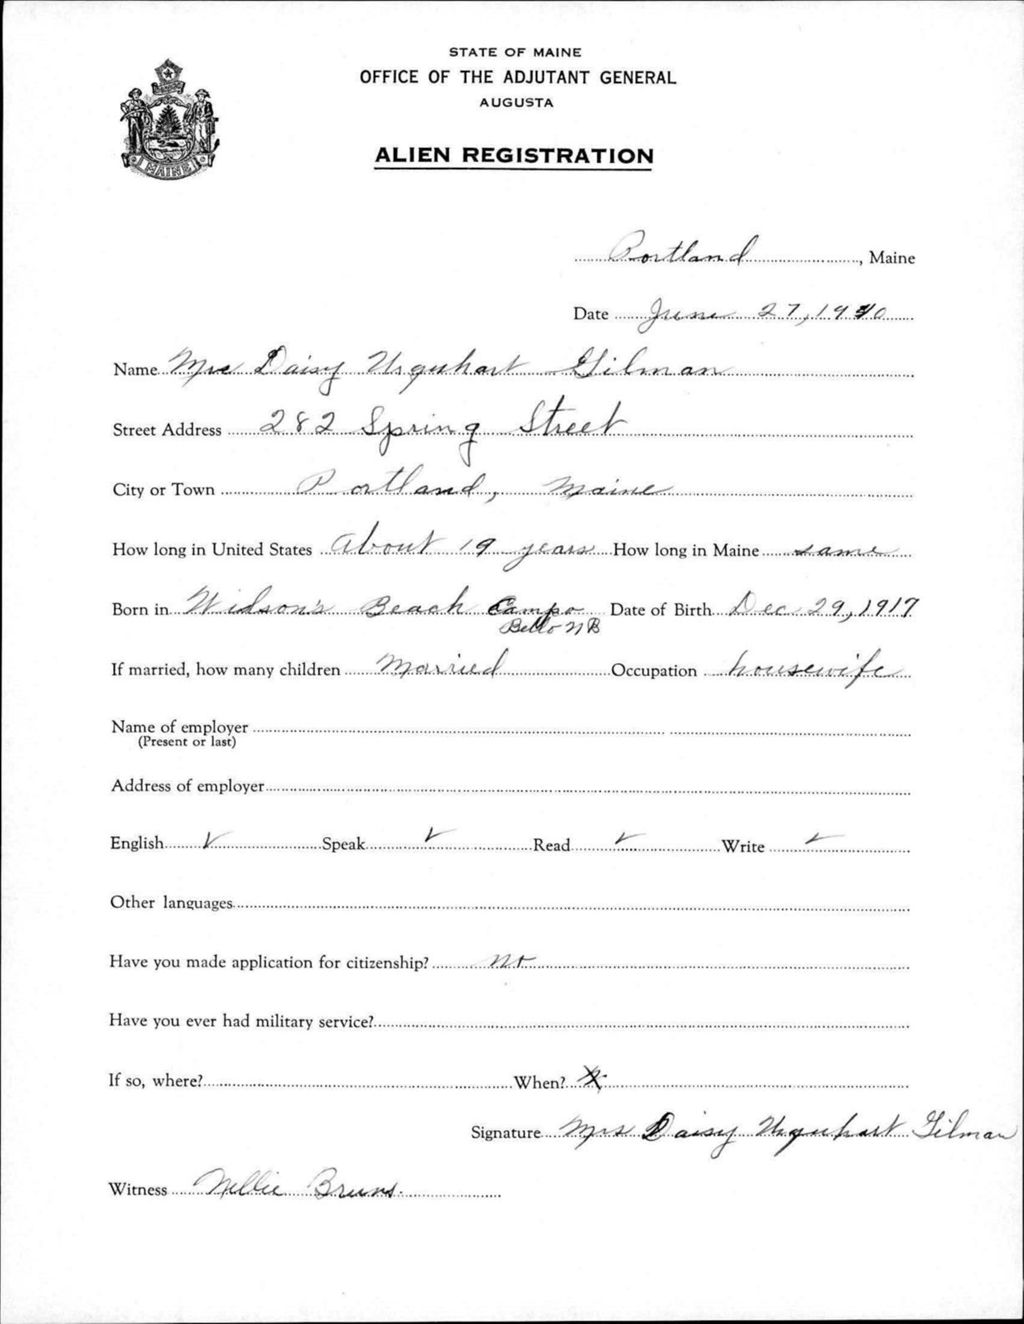 STATE OF MAINE
OFFICE OF THE ADJUTANT GENERAL
AUGUSTA
ALIEN REGISTRATION
MAINE
Portland, Maine
Date June 27, 1940
Name Mrs Daisy Urquhart Gilman
Street Address 282 Spring Street
City or Town Portland, Maine
How long in United States About 19 years How long in Maine same
Born in Wilson's Beach Campo Date of Birth Dec 29, 1917
Bello NB
If married, how many children Married Occupation housewife
Name of employer
(Present or last)
Address of employer
English ✓ Speak ✓ Read ✓ Write ✓
Other languages
Have you made application for citizenship? no
Have you ever had military service?
If so, where? When?
Signature Mrs Daisy Urquhart Gilman
Witness Nellie Bruns.